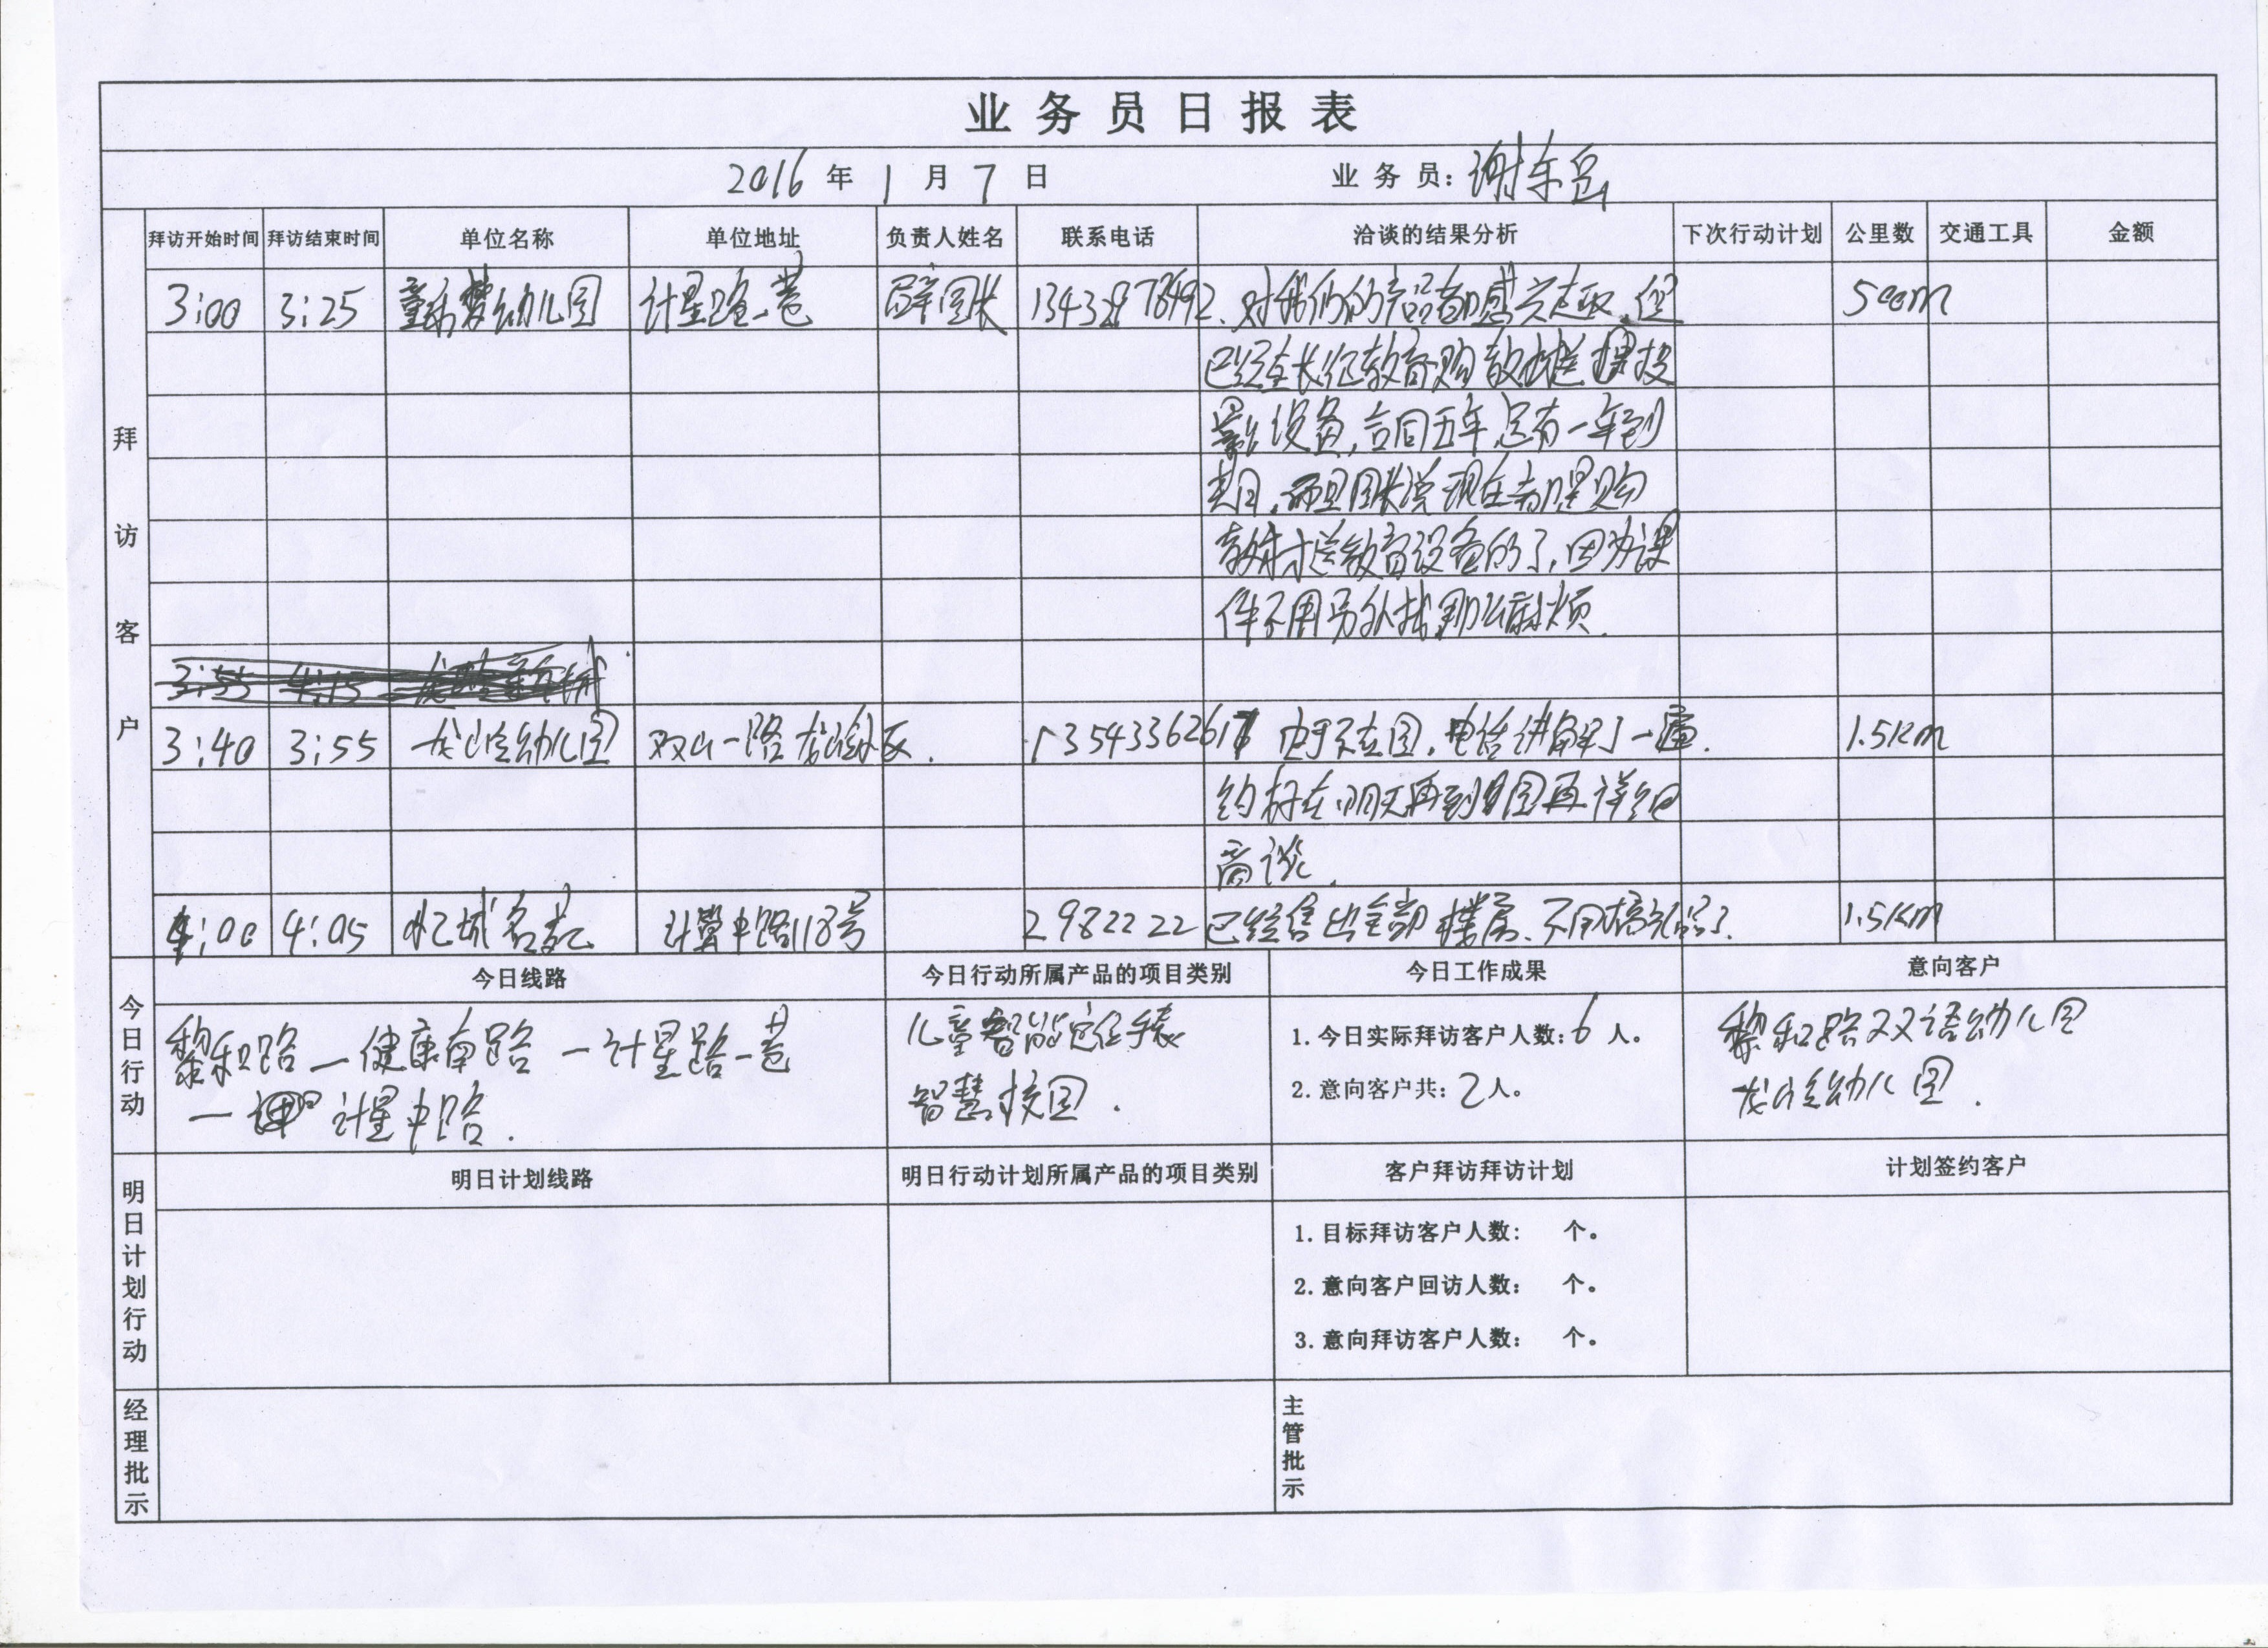 业务员日报表
2016 年 1 月 7 日 业务员：谢东
拜访客户
拜访开始时间 拜访结束时间 单位名称 单位地址 负责人姓名 联系电话 洽谈的结果分析 下次行动计划 公里数 交通工具 金额
3:00 3:25 童梦幼儿园 计星路一巷 薛园长 对我们的产品都感兴趣，但 500m
已经在长征教育购教材送投
影设备，合同五年，还有一年到
期，而且园长说现在都是购
教材才送教育设备的了，因为课
件不用另外找那么麻烦.
3:55 4:15
3:40 3:55 幼儿园 双山一路 13543362617 由于不在园，电话讲解了一遍. 1.5km
约好在明天再到园再详细
商谈.
4:00 4:05 城名 计算中路118号 2982222 已经售出全部楼房、不用搞礼品了. 1.5km
今日行动
今日线路 今日行动所属产品的项目类别 今日工作成果 意向客户
黎和路—健康南路—计星路一巷
—计星中路.
儿童智能定位手表
智慧校园.
1.今日实际拜访客户人数：6 人。
2.意向客户共：2人。
黎和路双语幼儿园
幼儿园.
明日计划行动
明日计划线路 明日行动计划所属产品的项目类别 客户拜访拜访计划 计划签约客户
1.目标拜访客户人数： 个。
2.意向客户回访人数： 个。
3.意向拜访客户人数： 个。
经理批示
主管批示